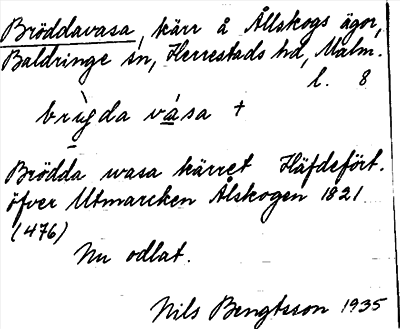 Bröddavasa, kärr å Ållskogs ägor,
Baldringe sn, Herrestads hd, Malm.
l. 8
brìgda vása +
Brödda wasa kärret Häfdefört.
öfver Utmarcken Ålskogen 1821
(476)
Nu odlat.
Nils Bengtsson 1935